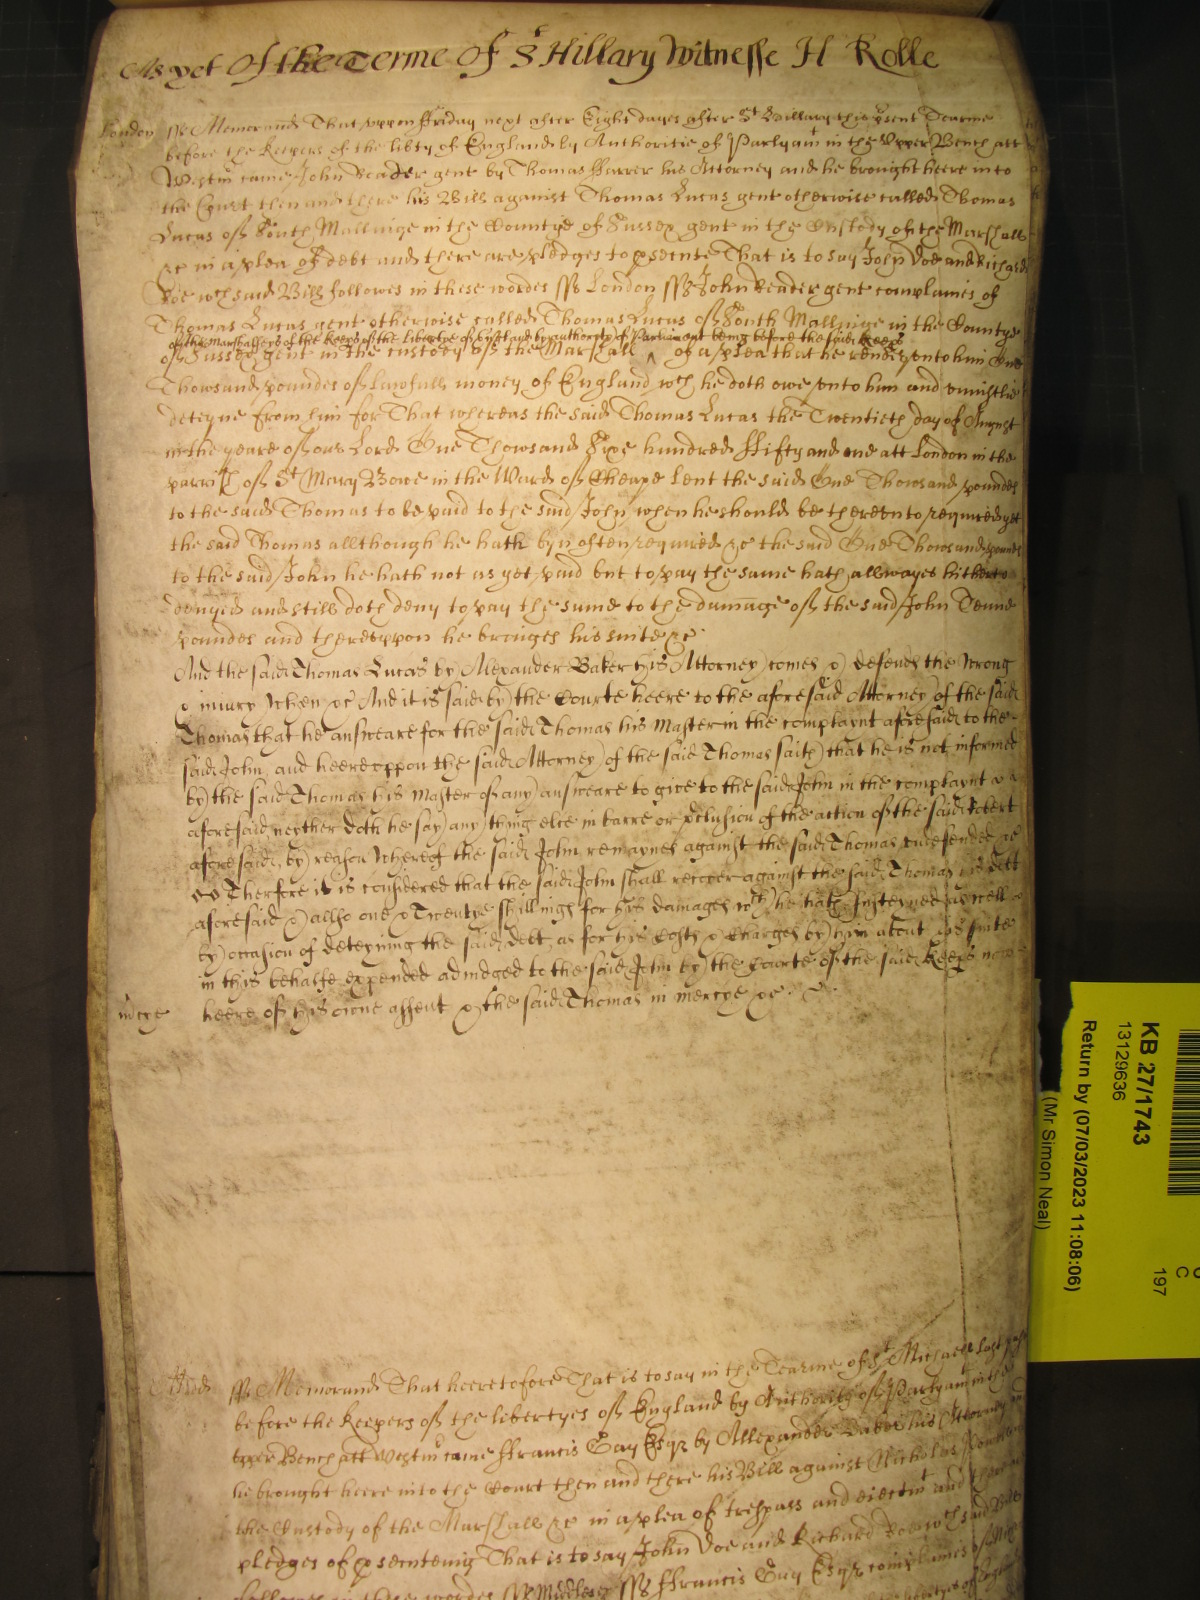 As yet Of the Terme Of St Hillary Witnesse H Rolle
London ss Memorand That uppon ffriday next after Eight dayes after St Hillary this psent Tearme
before the Keepers of the libty of England by Authoritie of Parlyamt in the Upper Bench att
Westm came John Reader gent by Thomas ffarrer his Attorney and he brought heere into
the Court then and there his Bill against Thomas Lucas gent otherwise called Thomas
Lucas of South Mallinge in the Countye of Sussex gent in the Custody of the Marshall
&c in a plea of debt and there are pledges to psecute That is to say John Doe and Richard
Roe wch said Bill followes in these wordes ss London ss John Reader gent complaines of
Thomas Lucas gent otherwise called Thomas Lucas of South Mallinge in the Countye
of the Marshallsey of the Keeps of the libertye of England by authority of Parliament being before the said Keeps
of Sussex gent in the custody of the Marshall ^ of a plea that he render unto him One
Thowsand poundes of lawfull money of England wch he doth owe unto him and uniustlie
deteyne from him for That whereas the said Thomas Lucas the Twentieth day of August
in the yeare of our Lord One Thowsand Sixe hundred ffifty and one att London in the
parrish of St Mary Bowe in the Ward of Cheape lent the said One Thowsand poundes
to the said Thomas to be paid to the said John when he should be thereunto required yet
the said Thomas allthough he hath byn often required &c the said One Thowsand pounds
to the said John he hath not as yet paid but to pay the same hath allwayes hitherto
denyed and still doth deny to pay the same to the damage of the said John Tenne
poundes and thereuppon he bringes his suite &c
And the said Thomas Lucas by Alexander Baker his Attorney comes & defends the wrong
& iniury when &c And it is said by the Courte heere to the aforesaid Attorney of the said
Thomas that he answeare for the said Thomas his Master in the complaynt aforesaid to the
said John and heereuppon the said Attorney of the said Thomas saith that he is not informed
by the said Thomas his Master of any answeare to give to the said John in the complaynt
aforesaid neyther doth he say any thing else in barre or pclusion of the action of the said
aforesaid by reason whereof the said John remaynes against the said Thomas undefended &c
Therfore it is considered that the said John shall recover against the said Thomas his debt
aforesaid & allso one & Twentye shillings for his damages wch he hath susteyned as well
by occasion of deteyning the said debt as for his Costs & Charges by him about his suite
in this behalfe expended adiudged to the said John by the Courte of the said Keeps now
heere of his owne assent & the said Thomas in mercye &c
in mcye
Midd ss Memorand That heeretofore That is to say in the Tearme of St Michaell last past
before the Keepers of the libertyes of England by Authority of Parlyamt in the
upper Bench att Westm came ffrancis Gay Esqr by Allexander Baker his Attorney and
he brought heere into the Court then and there his Bill against Nicholas
the Custody of the Marshall &c in a plea of trespass and eiectmt and there
pledges of psecuteing That is to say John Doe and Richard Roe wch said Bill
followes in these wordes ss Middlesex ss ffrancis Gay Esqr complaines of
KB 27/1743
13129636
Return by (07/03/2023 11:08:06)
(Mr Simon Neal)
C
197